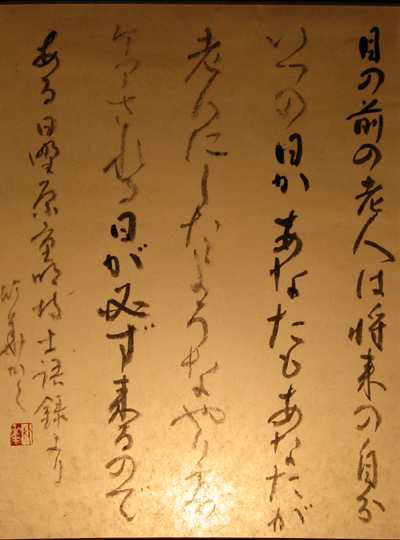 目の前の老人は将来の自分
いつの日かあなたもあなたが
老人にしたようなやり方で
ケアされる日が必ず来るので
ある 日野原重明博士語録より